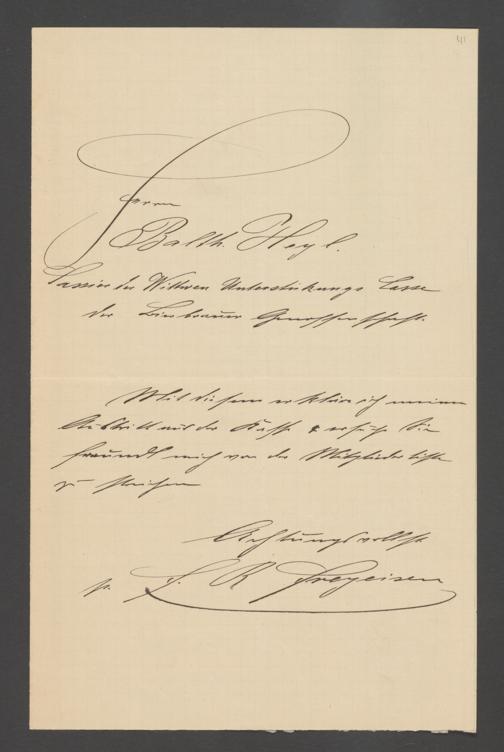 41
Herrn
Balth. Heyl.
Cassier der Wittwen Unterstützungs Casse
der Bierbrauer Genossenschaft.
Mit diesem erkläre ich meinen
Austritt aus der Kasse & ersuche Sie
freundl mich von der Mitgliederliste
zu streichen
Achtungsvollst
J. R. Freyeisen